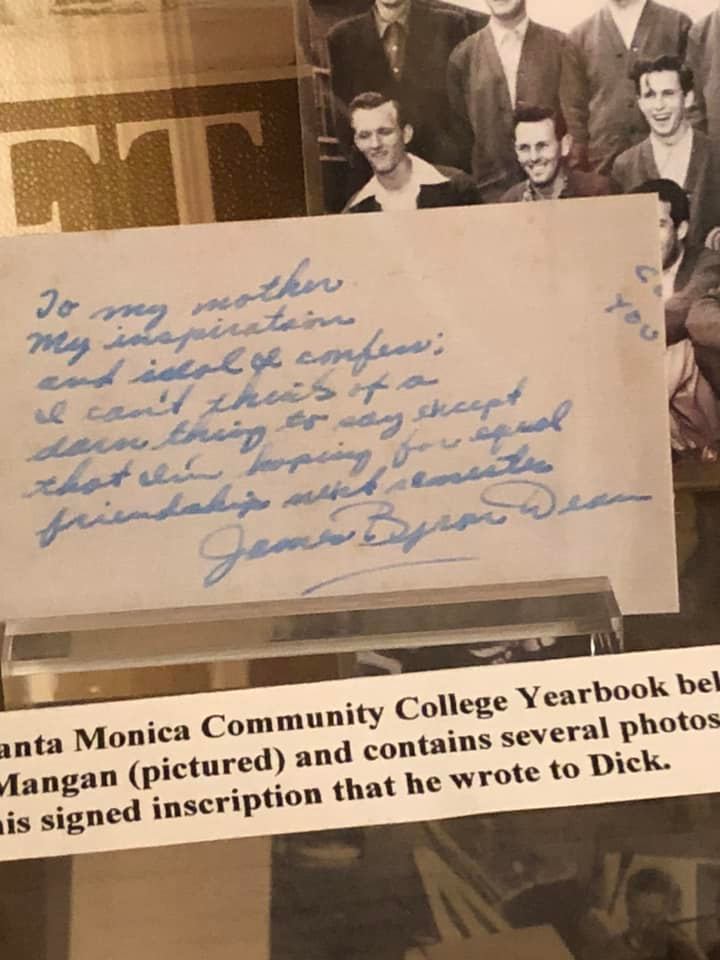 ET
To my mother
My inspiration
and idol I confess;
I can't think of a
darn thing to say except
that I'm hoping for equal
friendship next semester
James Byron Dean
YOU
anta Monica Community College Yearbook bel
Mangan (pictured) and contains several photos
his signed inscription that he wrote to Dick.